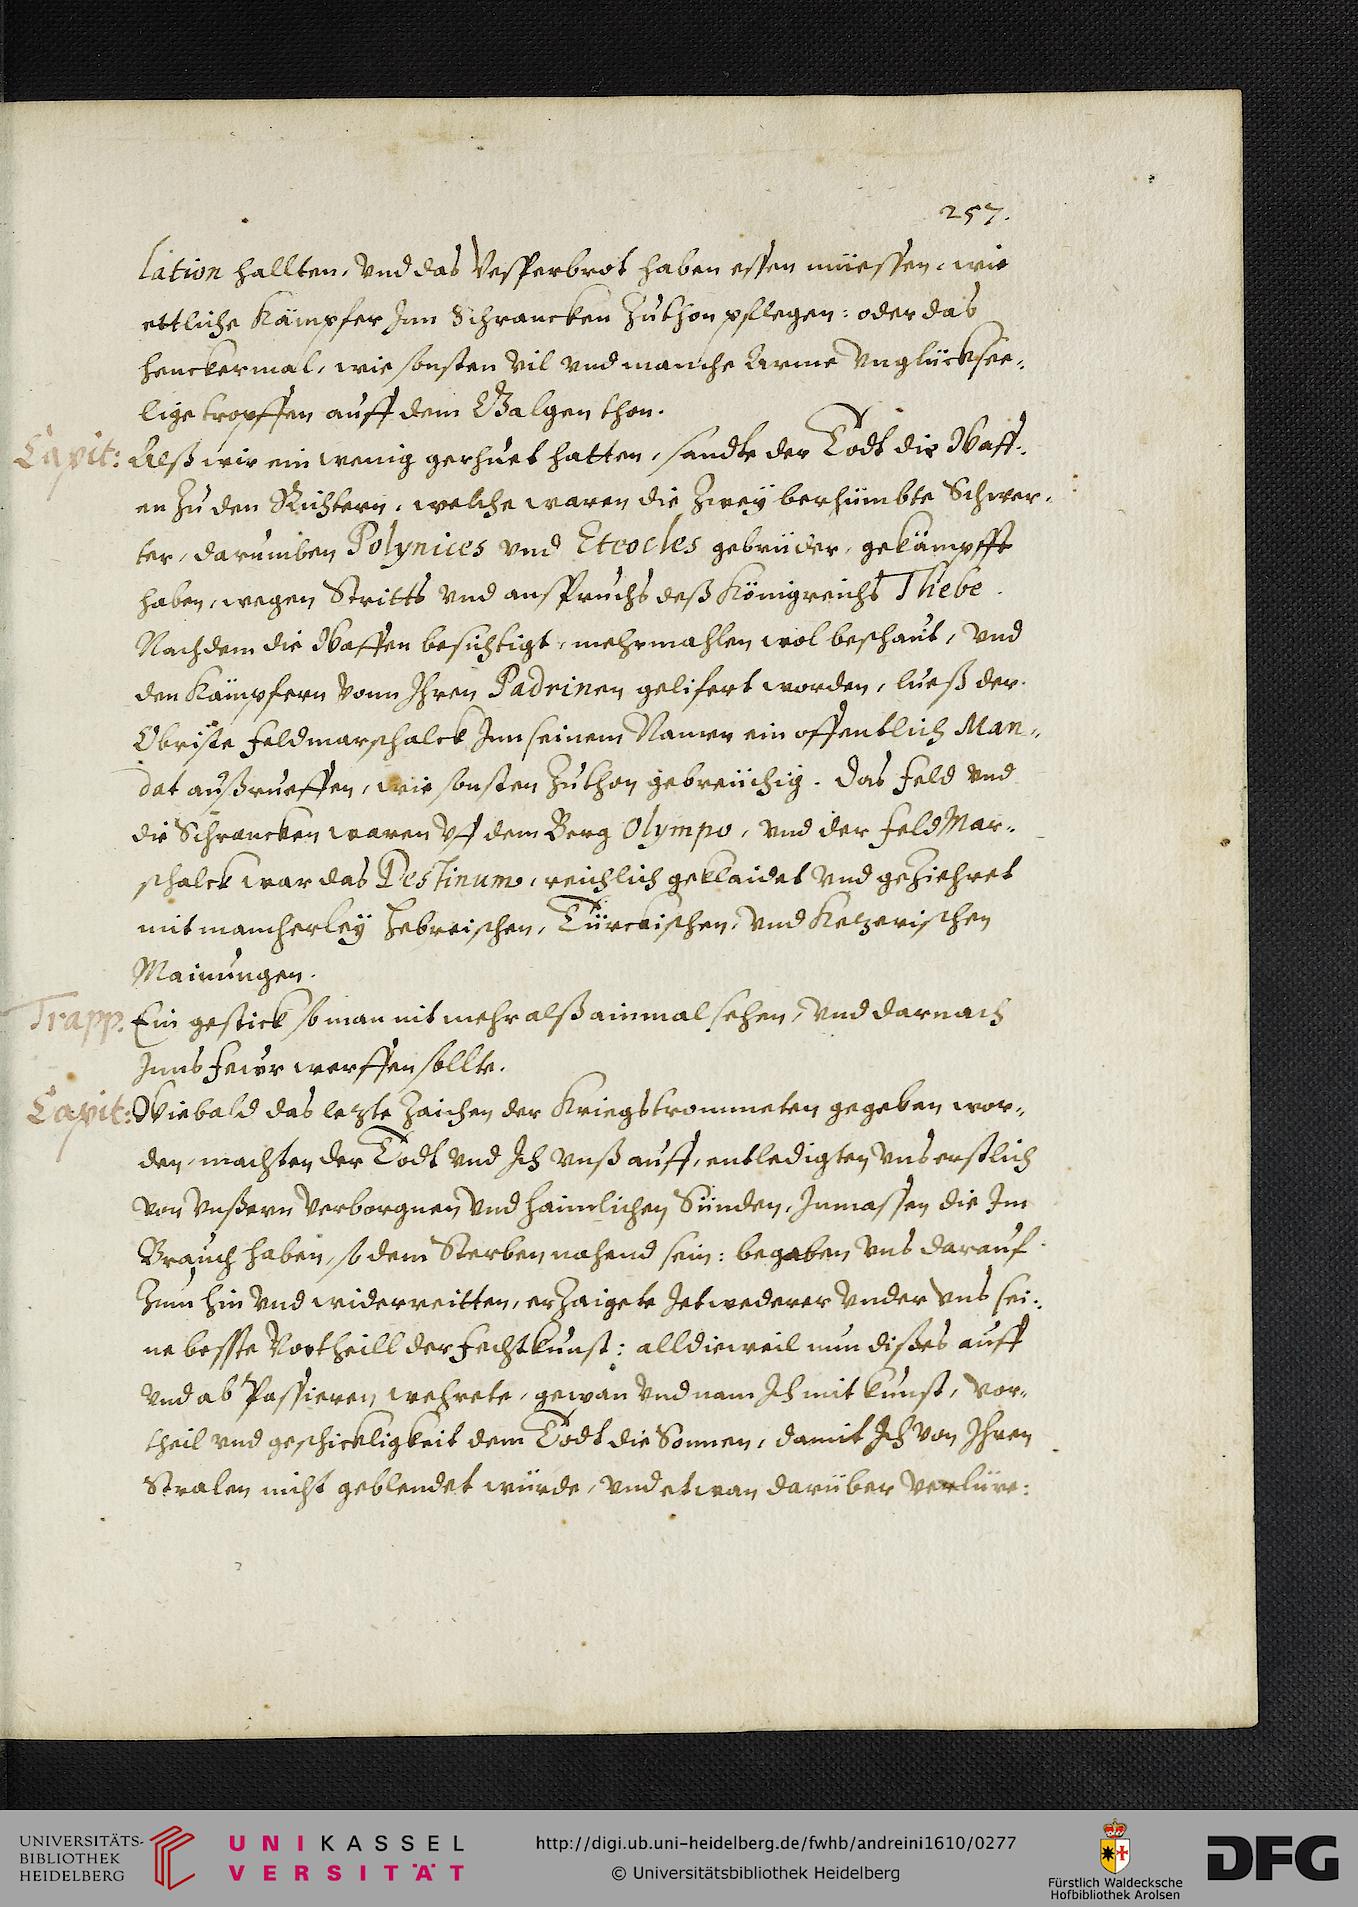 257.
lation hallten, vnd das Vesperbrot haben essen müessen, wie
ettliche Kämpfer Inn Schrancken Zuthon pflegen: oder das
henckermal, wie sonsten vil vnd manche Arme vnglücksee-
lige tropffen auff dem Galgen thon.
Capit: Alß wir ein wenig gerhuet hatten, sandte der Todt die Waff-
en Zu den Richtern, welche waren die Zwey berhümbte Schwer-
ter, darumben Polynices vnd Eteocles gebrüder, gekämpfft
haben, wegen Stritts vnd anspruchs deß Königreichs Thebe.
Nachdem die Waffen besichtigt, mehrmahlen wol beschaut, vnd
den Kämpfern vonn Ihren Padrinen gelifert worden, lueß der
Obriste Feldmarschalck Inn seinem Namen ein offentlich Man-
dat außrueffen, wie sonsten Zuthon gebreüchig. Das Feld vnd
die Schrancken waren vf dem Berg Olympo, vnd der FeldMar-
schalck war das Destinum, reichlich geklaidet vnd geziehret
mit mancherley Hebreischen, Türckischen, vnd Ketzerischen
Mainungen.
Trapp. Ein gestick so man nit mehr alß ainmal sehen, vnd darnach
Inns Fewr werffen sollte.
Capit: Wiebald das lezte Zaichen der Kriegstrommeten gegeben wor-
den, machten der Todt vnd Ich vnß auff, entledigten vns erstlich
von vnßern verborgnen vnd haimlichen Sünden, Inmassen die Im
Brauch haben, so dem Sterben nahend sein: begaben vns darauf
Zum hin vnd widerreitten, erZaigete Jetwederer vnder vns sei-
ne beste Vortheill der Fechtkunst: alldieweil nun dißes auff
vnd ab Passieren wehrete, gewan vnd nam Ich mit kunst, vor-
theil vnd geschickligkeit dem Todt die Sonnen, damit Ich von Ihren
Stralen nicht geblendet würde, vnd etwan darüber verlüre:
UNIVERSITÄTS-
BIBLIOTHEK
HEIDELBERG
UNIKASSEL
VERSITÄT
http://digi.ub.uni-heidelberg.de/fwhb/andreini1610/0277
© Universitätsbibliothek Heidelberg
Fürstlich Waldecksche
Hofbibliothek Arolsen
DFG